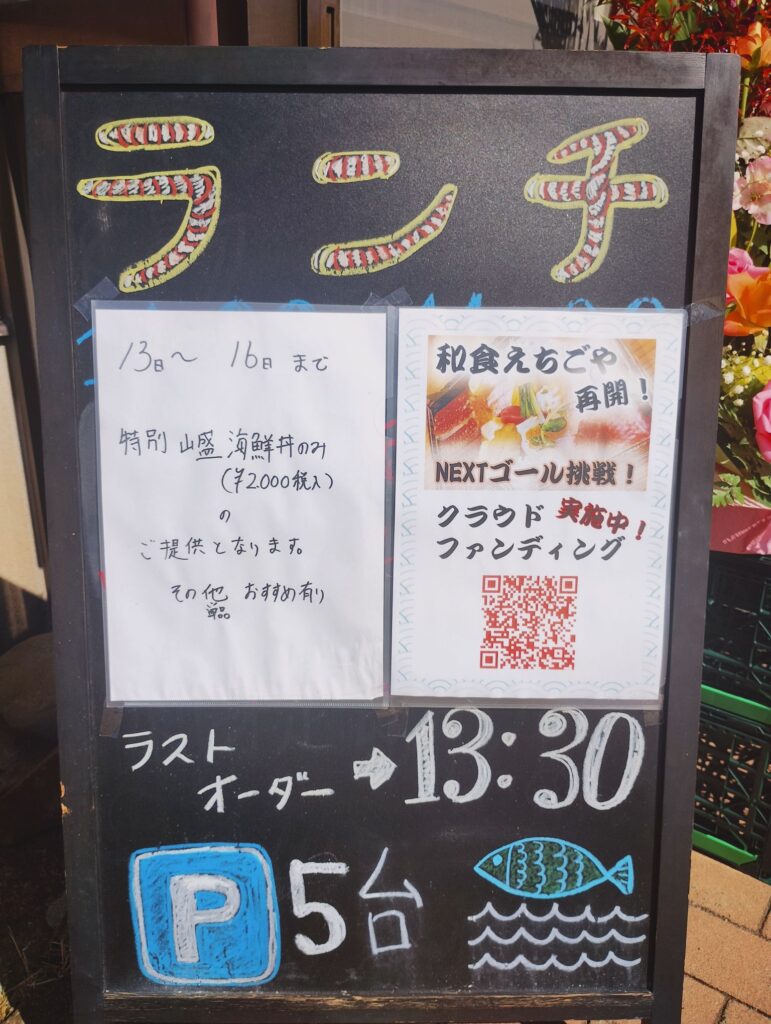 ランチ
13日〜 16日 まで
特別 山盛 海鮮丼のみ
(¥2000税込)
の
ご提供となります。
その他 おすすめ有り
単品
和食えちごや
再開！
NEXTゴール挑戦！
クラウド
ファンディング
実施中！
ラスト
オーダー → 13:30
P 5台